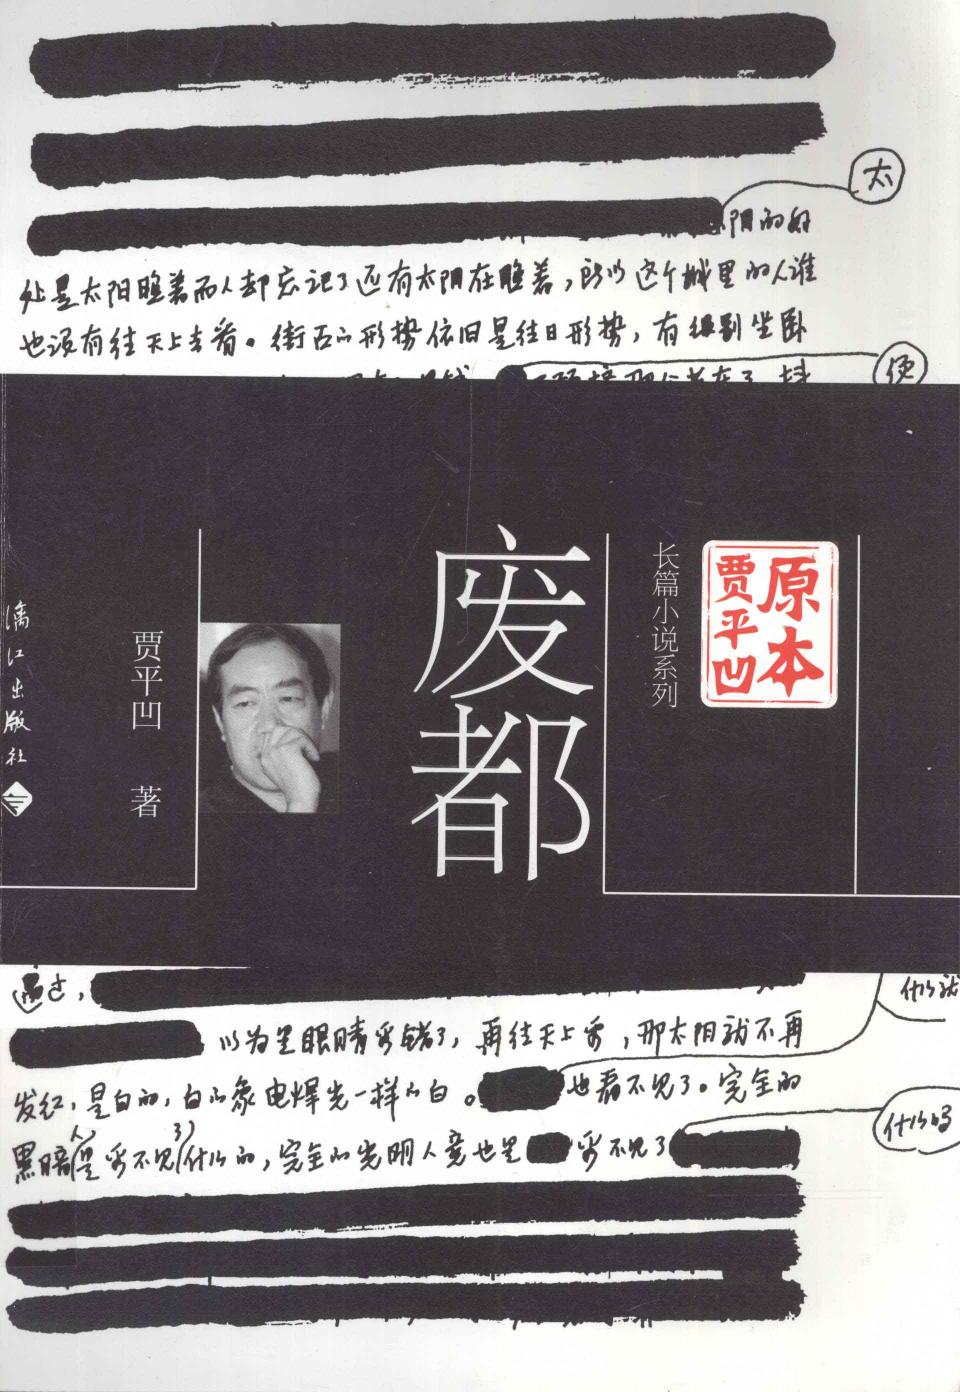 太
阳的好
处是太阳照着而人却忘记了还有太阳在照着，所以这个城里的人谁
也没有往天上去看。街面的形势依旧是往日形势，有级别坐卧
便
原本
贾平凹
长篇小说系列
废都
贾平凹 著
漓江出版社
通过，
什么就
以为是眼睛看错了，再往天上看，那太阳就不再
发红，是白的，白的象电焊光一样的白。也看不见了。完全的
什么吗
黑暗人是看不见了什么的，完全的光明人竟也是看不见了